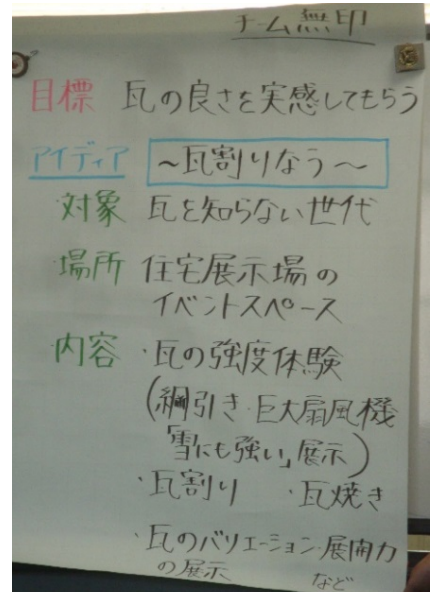 チーム無印
目標 瓦の良さを実感してもらう
アイディア ～瓦割りなう～
・対象 瓦を知らない世代
・場所 住宅展示場の
イベントスペース
・内容 ・瓦の強度体験
(綱引き・巨大扇風機
「雪にも強い」展示)
・瓦割り ・瓦焼き
・瓦のバリエーション・展開力
の展示 など